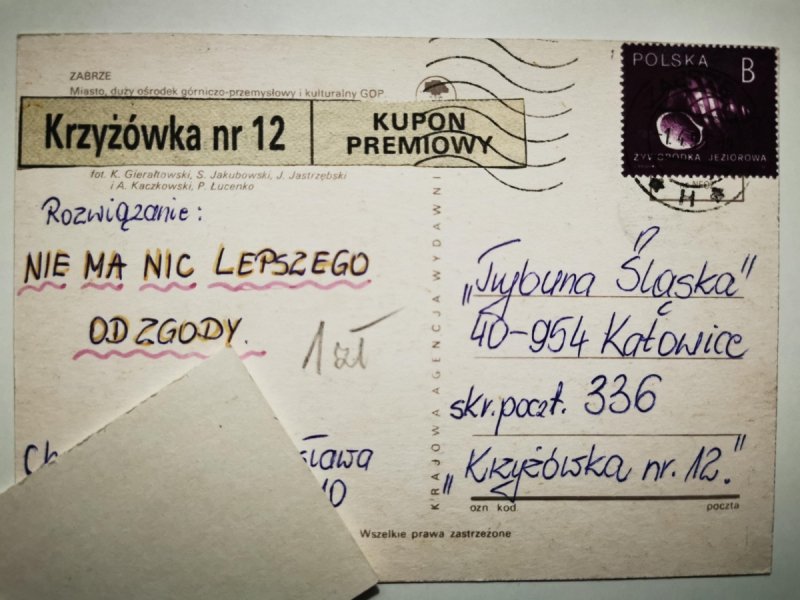 ZABRZE
Miasto, duży ośrodek górniczo-przemysłowy i kulturalny GOP
Krzyżówka nr 12
KUPON
PREMIOWY
fot. K. Gierałtowski, S. Jakubowski, J. Jastrzębski
i A. Kaczkowski, P. Łucenko
Rozwiązanie:
NIE MA NIC LEPSZEGO
OD ZGODY.
1 zł
10
KRAJOWA AGENCJA WYDAWNI
POLSKA B
ŻYWORODKA JEZIOROWA
"Trybuna Śląska"
40-954 Katowice
skr. poczt. 336
"Krzyżówka nr. 12."
ozn kod poczta
Wszelkie prawa zastrzeżone